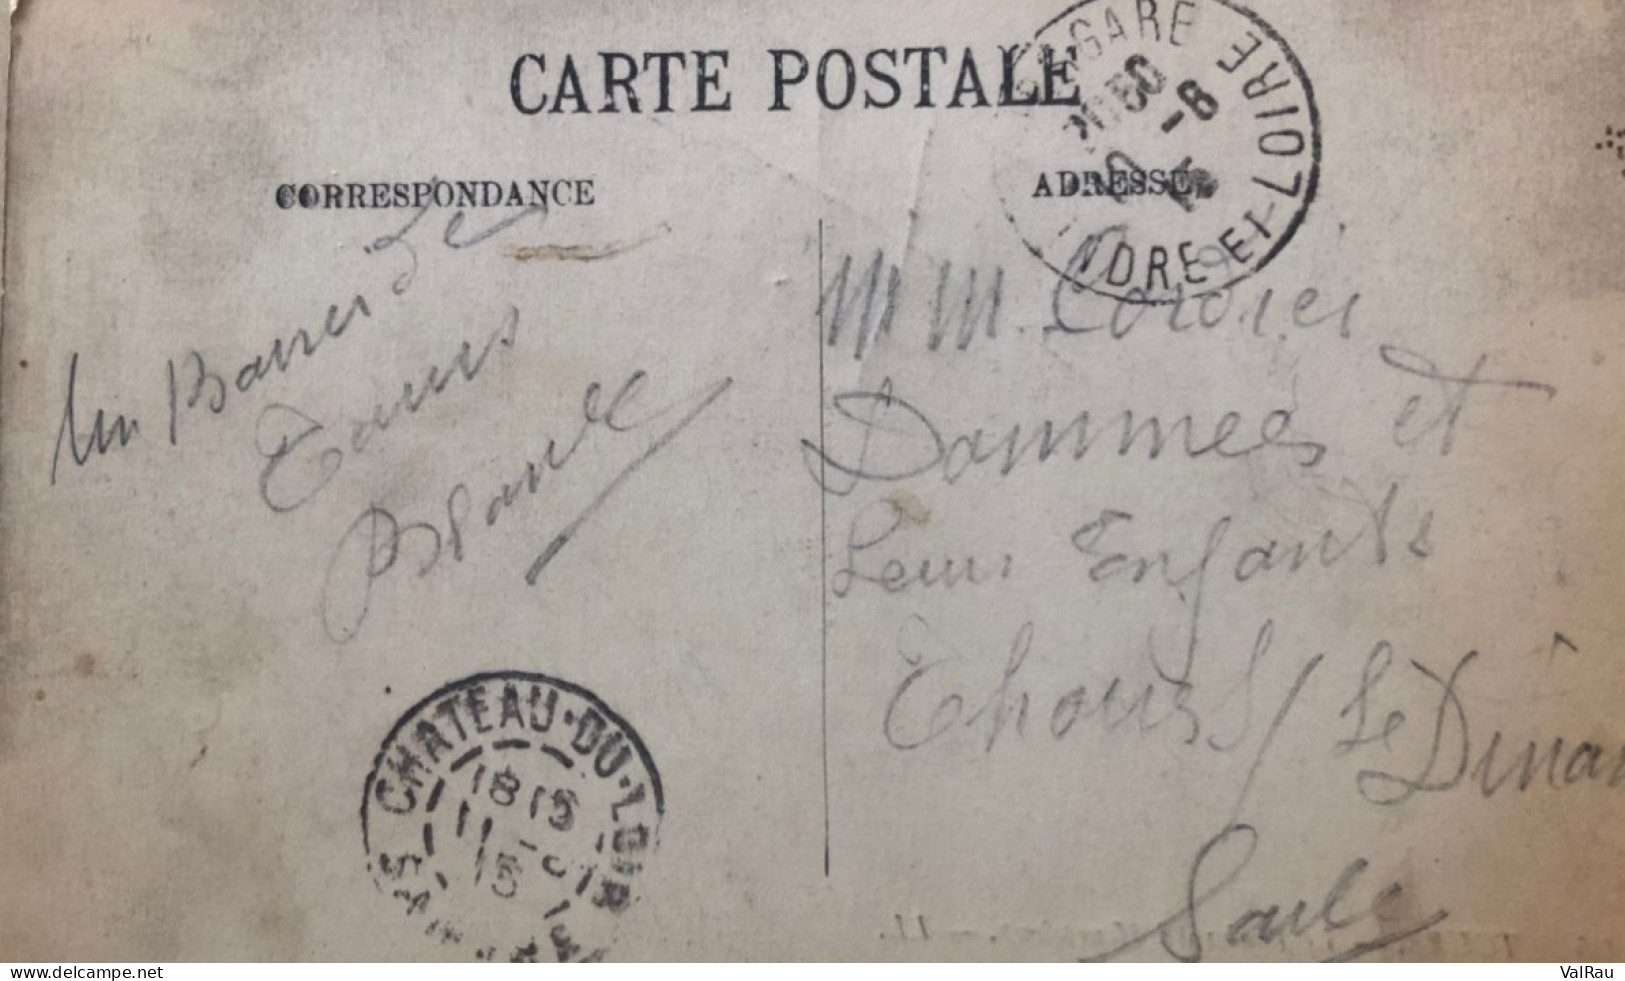 CARTE POSTALE
CORRESPONDANCE
ADRESSE
GARE
INDRE-ET-LOIRE
-8
Un Baiser de
Tours
Blanche
M M. Cordier
Dammees et
Leurs Enfants
Thoiré S/ Le Dinan
Sarthe
CHATEAU-DU-LOIR
18 15
11 -8
15
SARTHE
ValRau